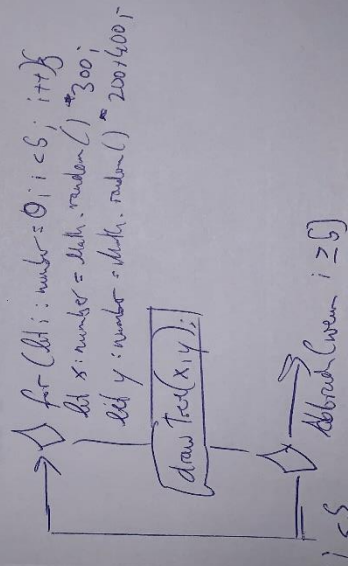 for (let i : number = 0; i < 5; i++){
let x : number = Math.random() * 300;
let y : number = Math.random() * 200+400;
drawTree(x,y);
Abbruch (wenn i ≥ 5)
i < 5